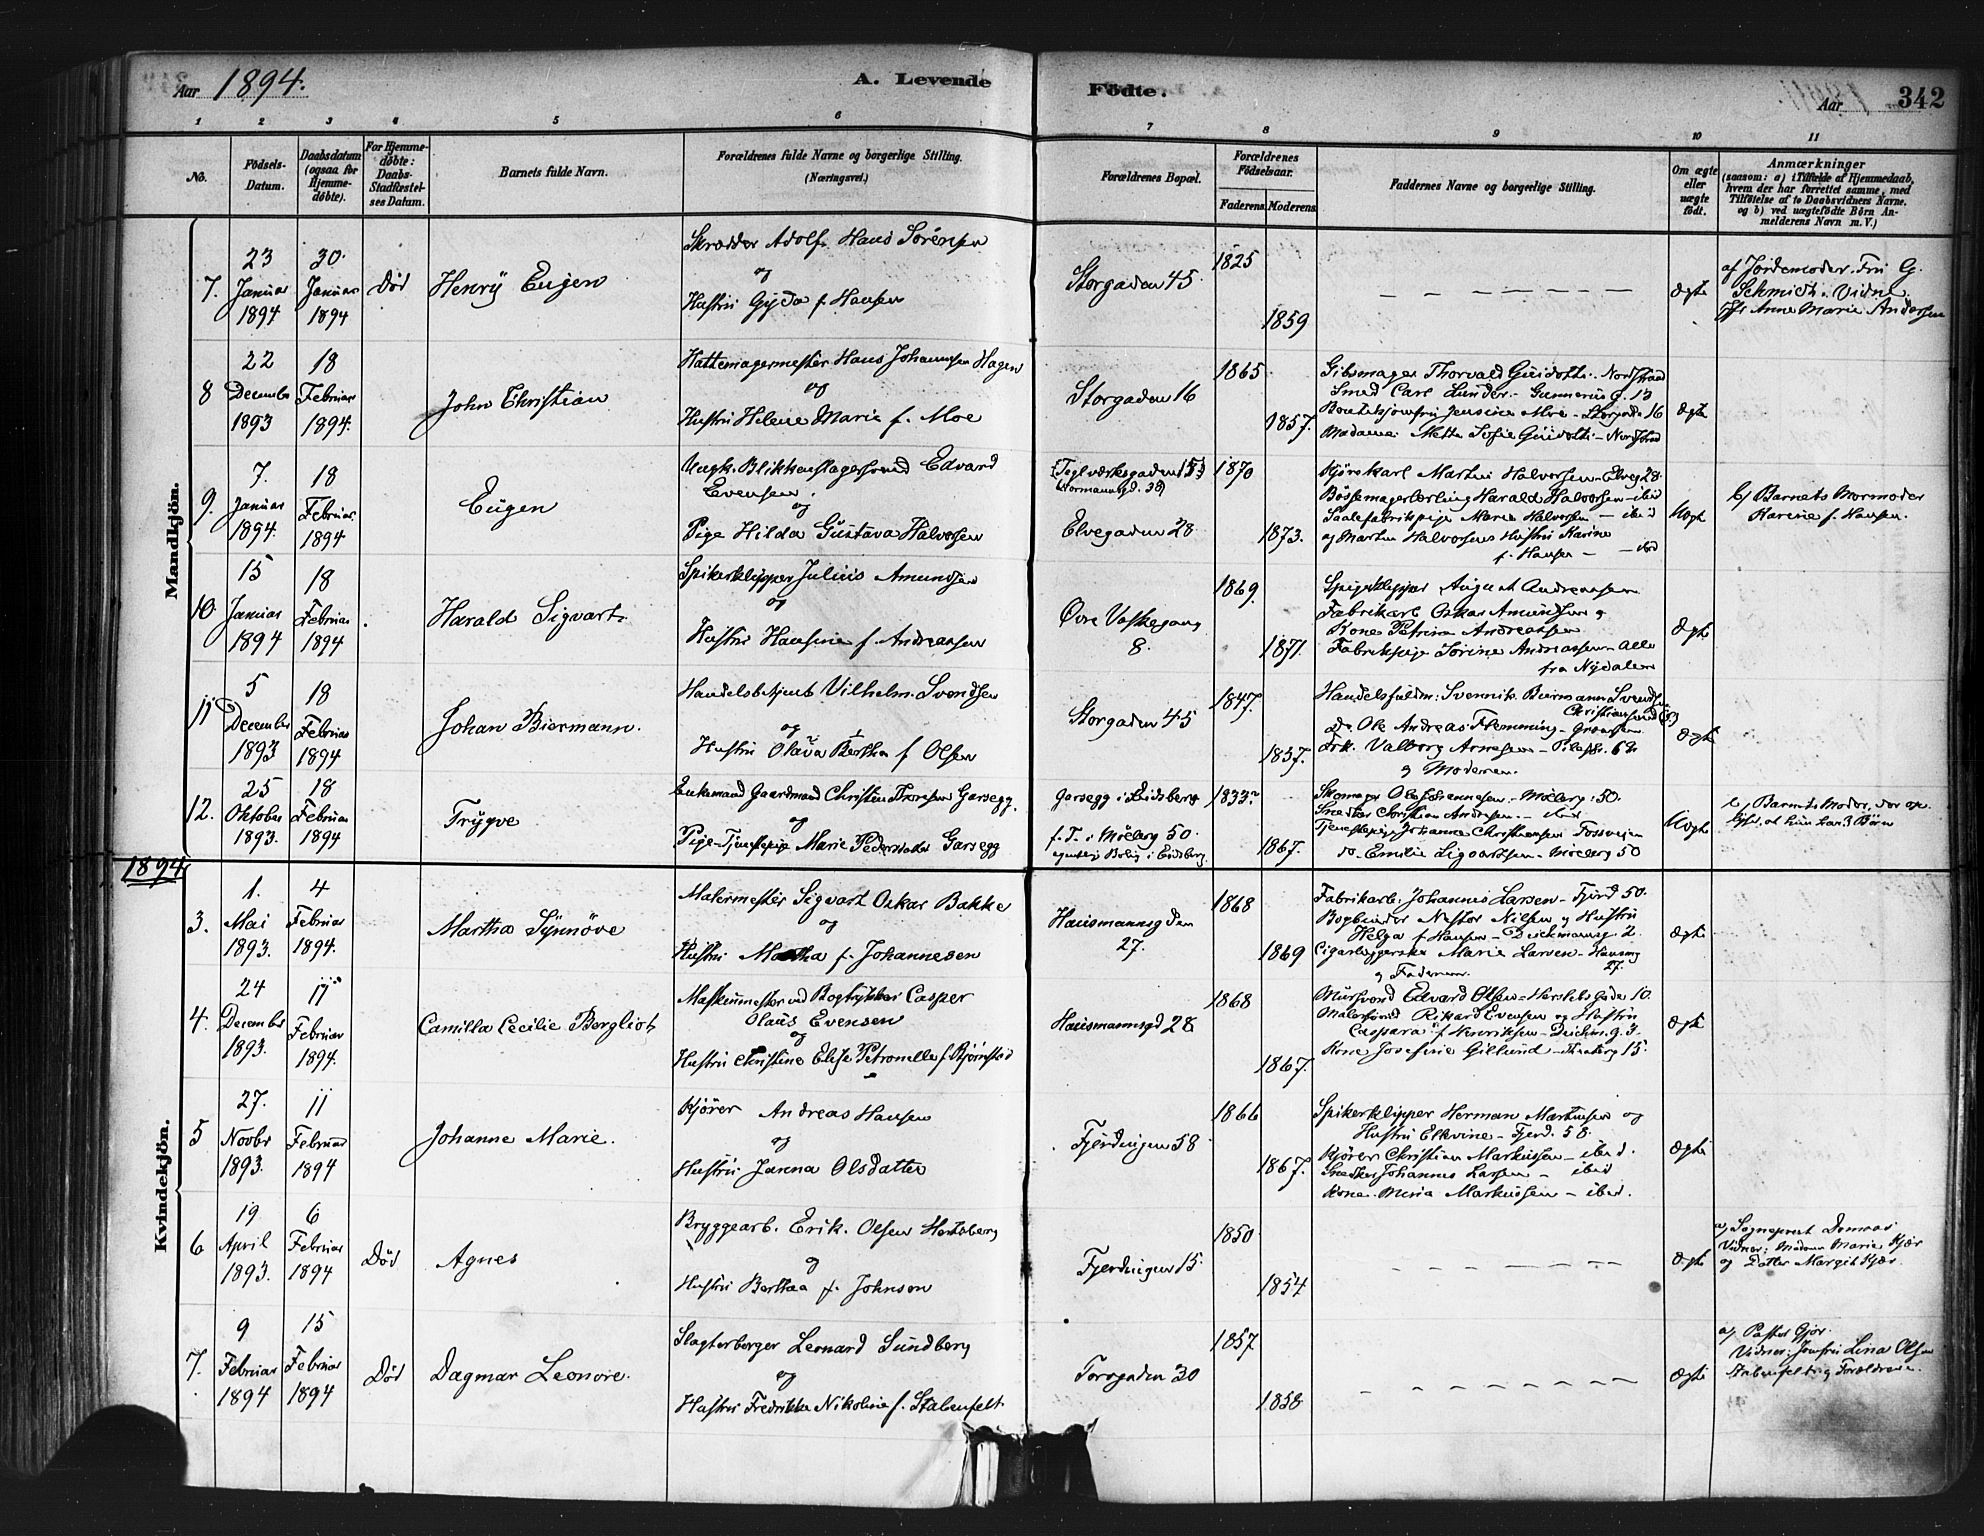 Aar 1894.
A. Levende
Fødte.
Aar
342
1 2 3 4 5 6 7 8 9 10 11
No.
Fødsels-Datum.
Daabsdatum (ogsaa for Hjemme-døbte).
For Hjemme-døbte: Daabs-Stadfæstel-ses Datum.
Barnets fulde Navn.
Forældrenes fulde Navne og borgerlige Stilling. (Næringsvei.)
Forældrenes Bopæl.
Forældrenes Fødselsaar.
Faderens. Moderens.
Faddernes Navne og borgerlige Stilling.
Om ægte eller uægte født.
Anmærkninger
(saasom: a) i Tilfælde af Hjemmedaab, hvem der har forrettet samme, med Tilføielse af to Daabsvidners Navne, og b) ved uægtefødte Børn An-melderens Navn m. V.)
Mandkjøn.
7. 23 Januar 1894
30. Januar 1894
Død
Henry Eugen
Skrædder Adolf Hans Sørensen
og
Hustru Gyda f. Hansen
Storgaden 45.
1825
1859
Ægte
af Jordemoder Fru G.
Schmidt. Vidne
Anne Marie Andersen
8 22 December 1893
18 Februar 1894.
John Christian
Hattemagermester Hans Johannsen Hagen
og
Hustru Helene Maria f. Moe
Storgaden 16
1865
1857.
Gibsmager Thorvald Guidotti. Nordstrand
Smed Carl Lunder. Gunnerus g. 13
Jensine Moe - Storgaden 16
Madame Mette Sofie Guidotti - Nordstrand
Ægte
9. 7. Januar 1894.
18 Februar 1894
Eugen
Ungk. Blikkenslagersvend Edvard
Evensen.
og
Pige Hilda Gustava Halvorsen
Teglværksgaden 15
Elvegaden 28
1870
1873.
Kjørekarl Martin Halvorsen Elveg 28.
Bøssemagerlærling Harald Halvorsen ibid
Maria Halvorsen - ibid
og Martin Halvorsens Hustru Karine
f. Hansen - ibid
Uægte
b) Barnets Mormoder
Karine f. Hansen.
10. 15 Januar 1894
18 Februar 1894
Harald Sigvart
Spikerklipper Julius Amundsen
og
Hustru Hansine f. Andreassen
Øvre Vaskegang
8.
1869.
1871.
August Andreassen
Fabrikarb Oskar Amundsen og
Kone Petrine Andreassen
Fabrikpige Sørine Andreassen Alle
fra Nydalen
Ægte
11 5 December 1893
18 Februar 1894
Johan Biermann.
Handelsbetjent Vilhelm Svendsen
og
Hustru Olava Bertha f Olsen
Storgaden 45
1847.
1857.
Handelsfuldm: Svennik Biermann Svendsen
Christianssund
do. Ole Andreas Flemming - Grønsen
Frk. Valborg Arnesen - Pilestr. 62
og Moderen.
Ægte
12. 25 Oktober 1893.
18 Februar 1894
Trygve
Enkemand Gaardmand Christen Thoresen Garsegg.
og
Pige - Tjenestepige Marie Pedersdatter Garsegg
Garsegg i Eidsberg
f. T. i Møllerg 50.
egentlig Bolig i Eidsberg
1833?
1867.
Skomager Ole Johannesen - Møllerg. 50.
Snedker Christian Andersen - ibid
Tjenestepige Johanne Christensen Fossveien
do - Emilie Sigvartsen - Møllerg 50
Uægte
b) Barnets Moder, der op-
at hun har 3 Børn
1894
Kvindekjøn.
3. 1. Mai 1893.
4 Februar 1894.
Martha Synnøve
Malermester Sigvart Oskar Bakke
og
Hustru Martha f. Johannesen
Hausmannsgden
27.
1868
1869
Fabrikarb. Johannes Larsen - Fjerd 50.
Bogbinder Nestor Nilsen og Hustru
Helga f. Hansen - Deichmansg. 2.
Marie Larsen - Hausmg
27.
og Faderen.
Ægte
4. 24 December 1893.
11 Februar 1894.
Camilla Cecilie Bergliot
Maskinmester ved Bogtrykkeri Casper
Olaus Evensen
og
Hustru Christine Elise Petronelle f. Bjørnstad
Hausmannsgd 28
1868
1867.
Mursvend Edvard Olsen - Herslebs gade 10.
Malersvend Rikard Evensen og Hustru
Caspara f. Henriksen - Deichm. g. 3.
Kone Josefine Gillund - 15.
Ægte
5 27. Novbr 1893.
11 Februar 1894
Johanne Marie.
Kjører Andreas Hansen
og
Hustru Janna Olsdatter
Fjerdingen 58
1866
1867.
Spikerklipper Herman Martinsen og
Hustru Elkvine - Fjerd. 58.
Kjører Christian Markussen - ibid.
Snedker Johannes Larsen - ibid
Kone Maria Markussen - ibid.
Ægte
6 19 April 1893.
6 Februar 1894
Død
Agnes
Bryggearb. Erik Olsen Hertzberg
og
Hustru Berthea f. Johnson
Fjerdingen 15.
1850
1854
Ægte
a) Sogneprest
Vidner: Madam Marie Kjær
og Datter Margit Kjær.
7. 9 Februar 1894
15 Februar 1894
Død
Dagmar Leonore.
Slagterborger Leonard Sundberg
og
Hustru Fredrikke Nikoline f. Stabenfelt
Torvgaden 30
1857
1858
Ægte
a) Pastor
Vidner: Jomfru Lina Olsen
Stabenfelt og Forældrene.